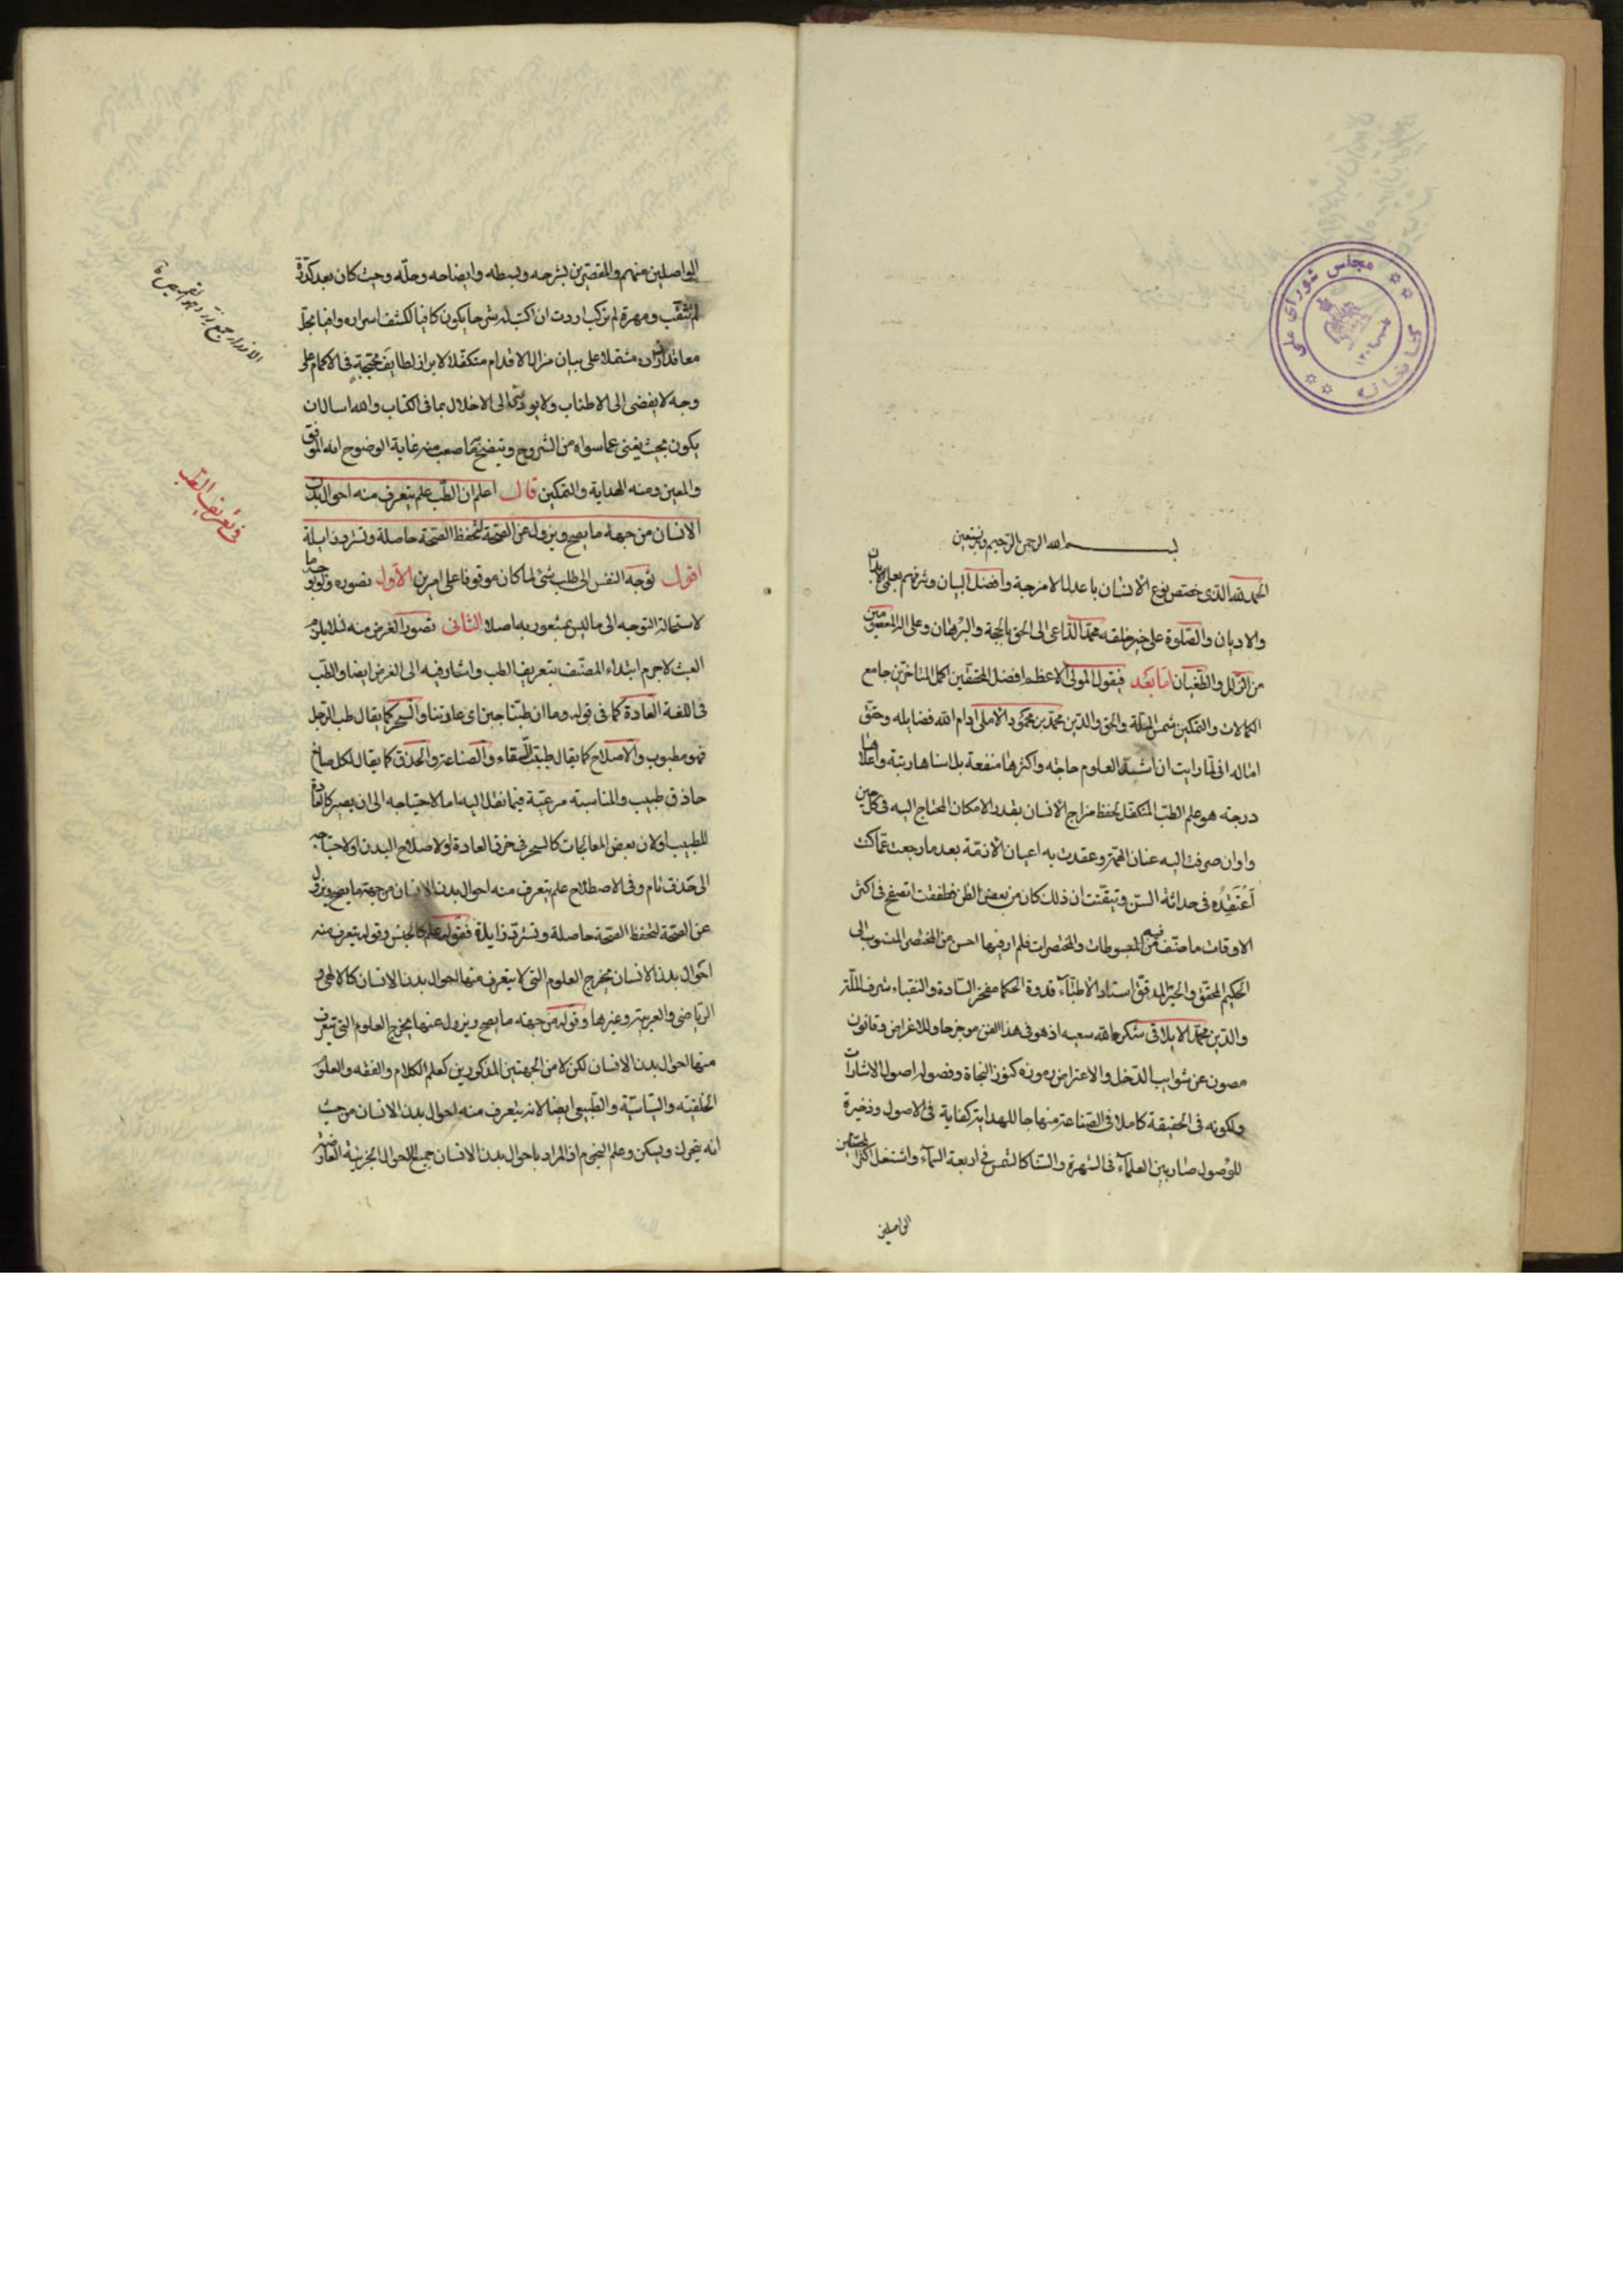 بسم الله الرحمن الرحيم وبه نستعين
الحمد لله الذى خصص نوع الانسان باعدل الامزجة وافضل البيان وشرفهم بعلمى الابدان
والاديان والصلوة على خير خلقه محمد الداعى الى الحق بالحجة والبرهان وعلى اله المعصومين
من الزلل والطغيان اما بعد فيقول المولى الاعظم افضل المحققين اكمل المتاخرين جامع
الكمالات والتمكين شمس الملة والحق والدين محمد بن محمود الاملى ادام الله فضايله وحقق
اماله انى لما رايت ان اشد العلوم حاجة واكثرها منفعة بل اسناها رتبة واعلاها
درجة هو علم الطب المتكفل لحفظ مزاج الانسان بقدر الامكان المحتاج اليه فى كل حين
واوان صرفت اليه عنان الهمة وعقدت به اعيان الازمة بعد ما رجعت عما كنت
اعتقده فى حداثة السن وتيقنت ان ذلك كان من بعض الظن فطفقت اتصفح فى اكثر
الاوقات ما صنف فيه من المبسوطات والمختصرات فلم ار فيها احسن من المختصر المنسوب الى
الحكيم المحقق والحبر المدقق استاد الاطباء قدوة الحكما مفخر السادة والنقباء شرف الملة
والدين محمد الايلاقى شكر الله سعيه اذ هو فى هذا الفن موجز حاو للاغراض وقانون
مصون عن شوايب الدخل والاعتراض رموزه كنوز النجاة وفصوله اصول الاشارات
ولكونه فى الحقيقة كاملا فى الصناعة منهاجا للهداية كفاية فى الاصول وذخيرة
للوصول صار بين العلماء فى الشهرة والسنا كالشمس فى اربعة السماء واشتغل اكثر المحصلين
الواصلين
الواصلين منهم والمقصرين بشرحه وبسطه وايضاحه وحله وحيث كان بعد كدرة
لم تثقب ومهرة لم تركب اردت ان اكتب له شرحا يكون كافيا لكشف اسراره وافيا بحل
معاقد مشتملا على بيان مزال الاقدام متكفلا لابراز لطايف محتجبة فى الاكمام على
وجه لا يفضى الى الاطناب ولا يودى الى الاخلال بما فى الكتاب والله اسال ان
يكون بحيث يغنى عما سواه من الشروح ويتضح ما صعب منه غاية الوضوح انه الموفق
والمعين ومنه الهداية والتمكين قال اعلم ان الطب علم يتعرف منه احوال بدن
الانسان من جهة ما يصح ويزول عن الصحة لتحفظ الصحة حاصلة وتسترد زايلة
اقول توجه النفس الى طلب شئ لما كان موقوفا على امرين الاول تصوره ولو بوجه ما
لاستحالة التوجه الى ما ليس بمشعور به اصلا الثانى تصور الغرض منه لئلا يلزم
العبث لا جرم ابتداء المصنف بتعريف الطب واشار فيه الى الغرض ايضا والطب
فى اللغة العادة كما فى قوله وما ان طبنا جبن اى عادتنا والسحر كما يقال طب الرجل
فهو مطبوب والاصلاح كما يقال طببت السقاء والصناعة والحذق كما يقال لكل صانع
حاذق طبيب والمناسبة مرعية فيما نقل اليه اما لاحتياجه الى ان يصير كالعادة
للطبيب او لان بعض المعالجات كالسحر فى خرق العادة او لاصلاح البدن او لاحتياجه
الى حذق تام وفى الاصطلاح علم يتعرف منه احوال بدن الانسان من جهة ما يصح ويزول
عن الصحة لتحفظ الصحة حاصلة وتسترد زايلة فقوله علم كالجنس وقوله يتعرف منه
احوال بدن الانسان يخرج العلوم التى لا يتعرف منها احوال بدن الانسان كالالهى و
الرياضى والعربية وغيرها وقوله من جهة ما يصح ويزول عنها يخرج العلوم التى تتعرف
منها احوال بدن الانسان لكن لا من الجهتين المذكورتين كعلم الكلام والفقه والعلوم
الخلقية والسياسية والطبيعى ايضا لانه يتعرف منه احوال بدن الانسان من حيث
انه يتحرك ويسكن وعلم النجوم اذ المراد باحوال بدن الانسان جميع الاحوال الجزئية العارضة
فى تعريف الطب
كتابخانه مجلس شوراى ملى